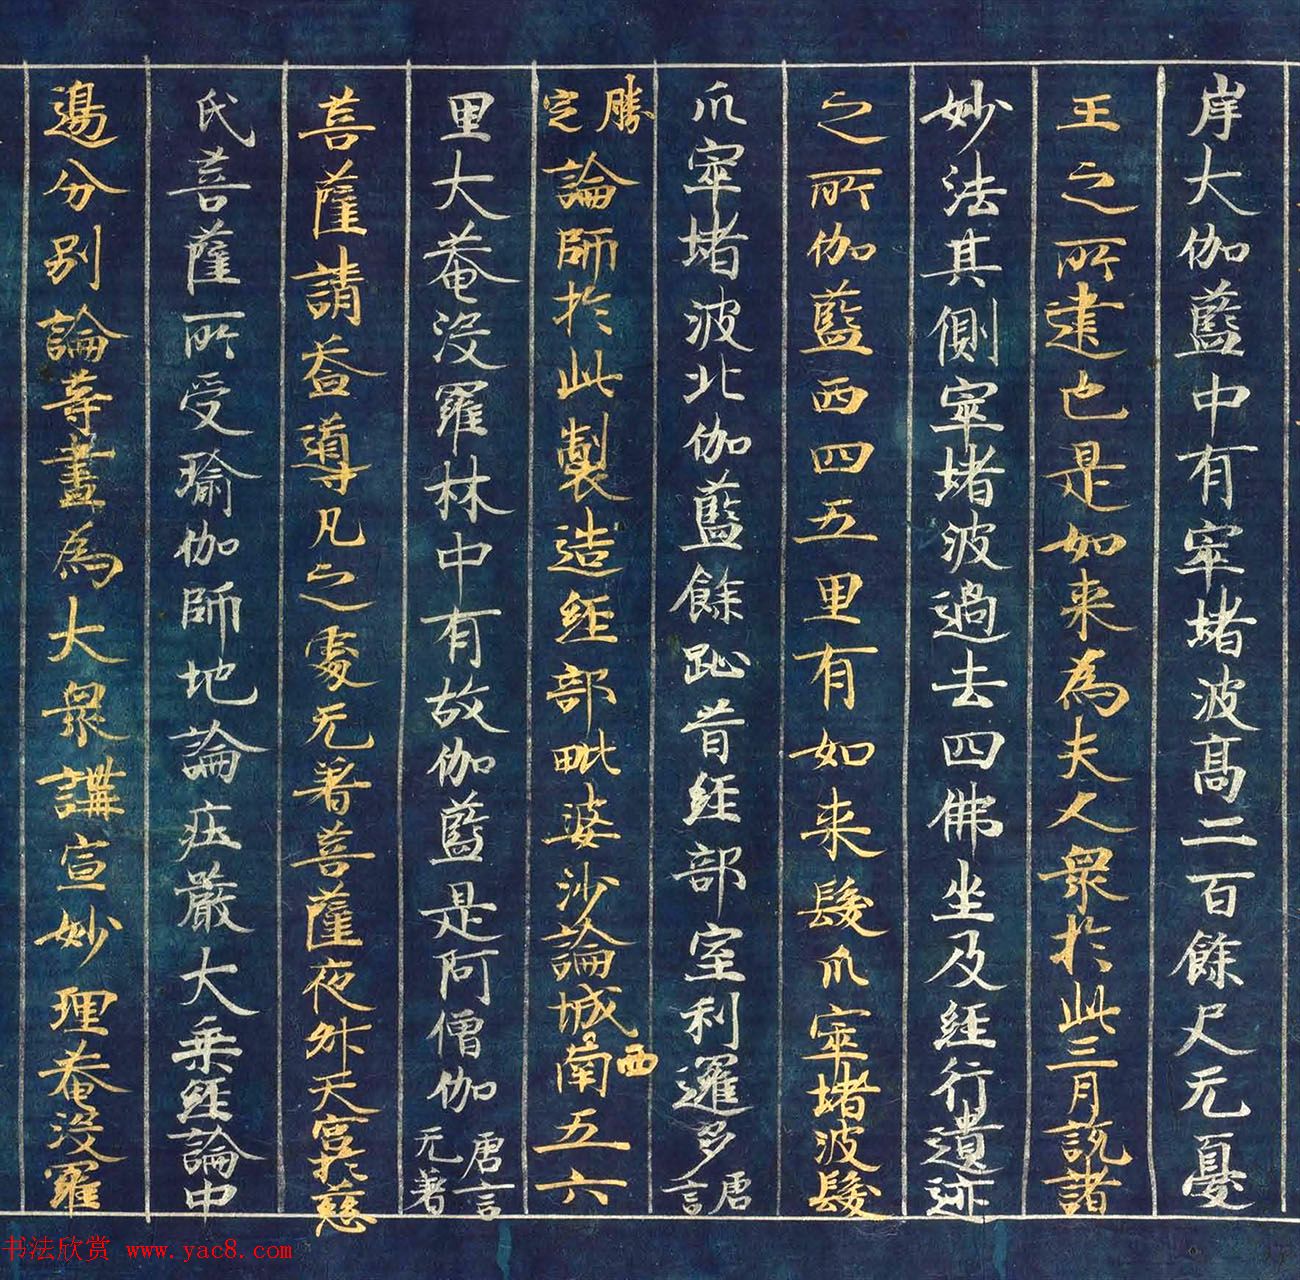 岸大伽藍中有窣堵波高二百餘尺无憂
王之所建也是如来為夫人衆於此三月説諸
妙法其側窣堵波過去四佛坐及経行遺迹
之所伽藍西四五里有如来髮爪窣堵波髮
爪窣堵波北伽藍餘趾昔経部室利邏多唐言
勝定論師於此製造経部毗婆沙論城西南五六
里大菴没羅林中有故伽藍是阿僧伽唐言无著
菩薩請益導凡之處无著菩薩夜外天宮於慈
氏菩薩所受瑜伽師地論庄嚴大乘経論中
邊分別論等晝為大衆講宣妙理菴没羅
书法欣赏 www.yac8.com